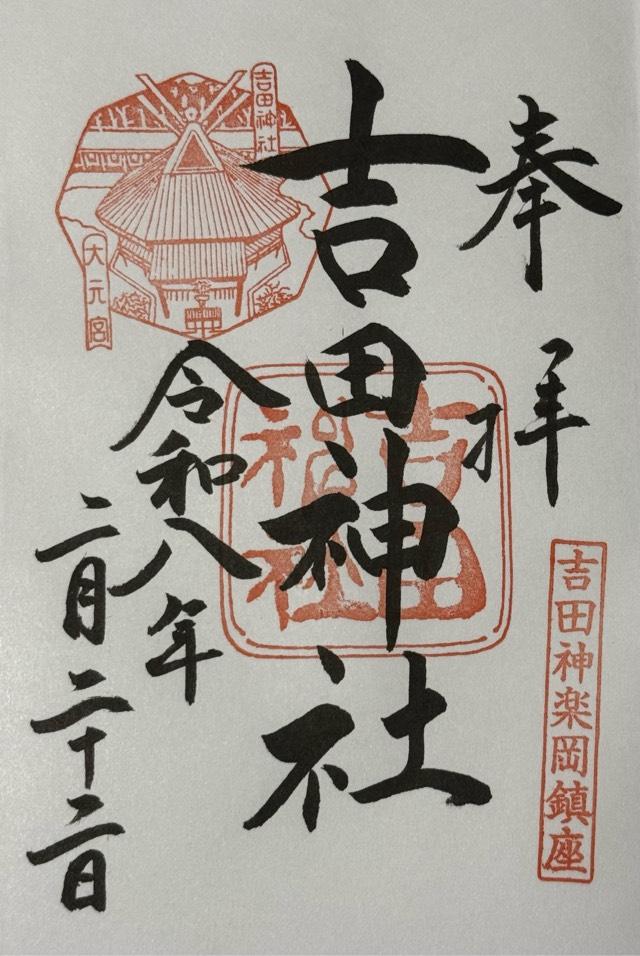 奉拝
吉田神楽岡鎮座
吉田神社
吉田神社
吉田神社
大元宮
令和八年
二月二十二日